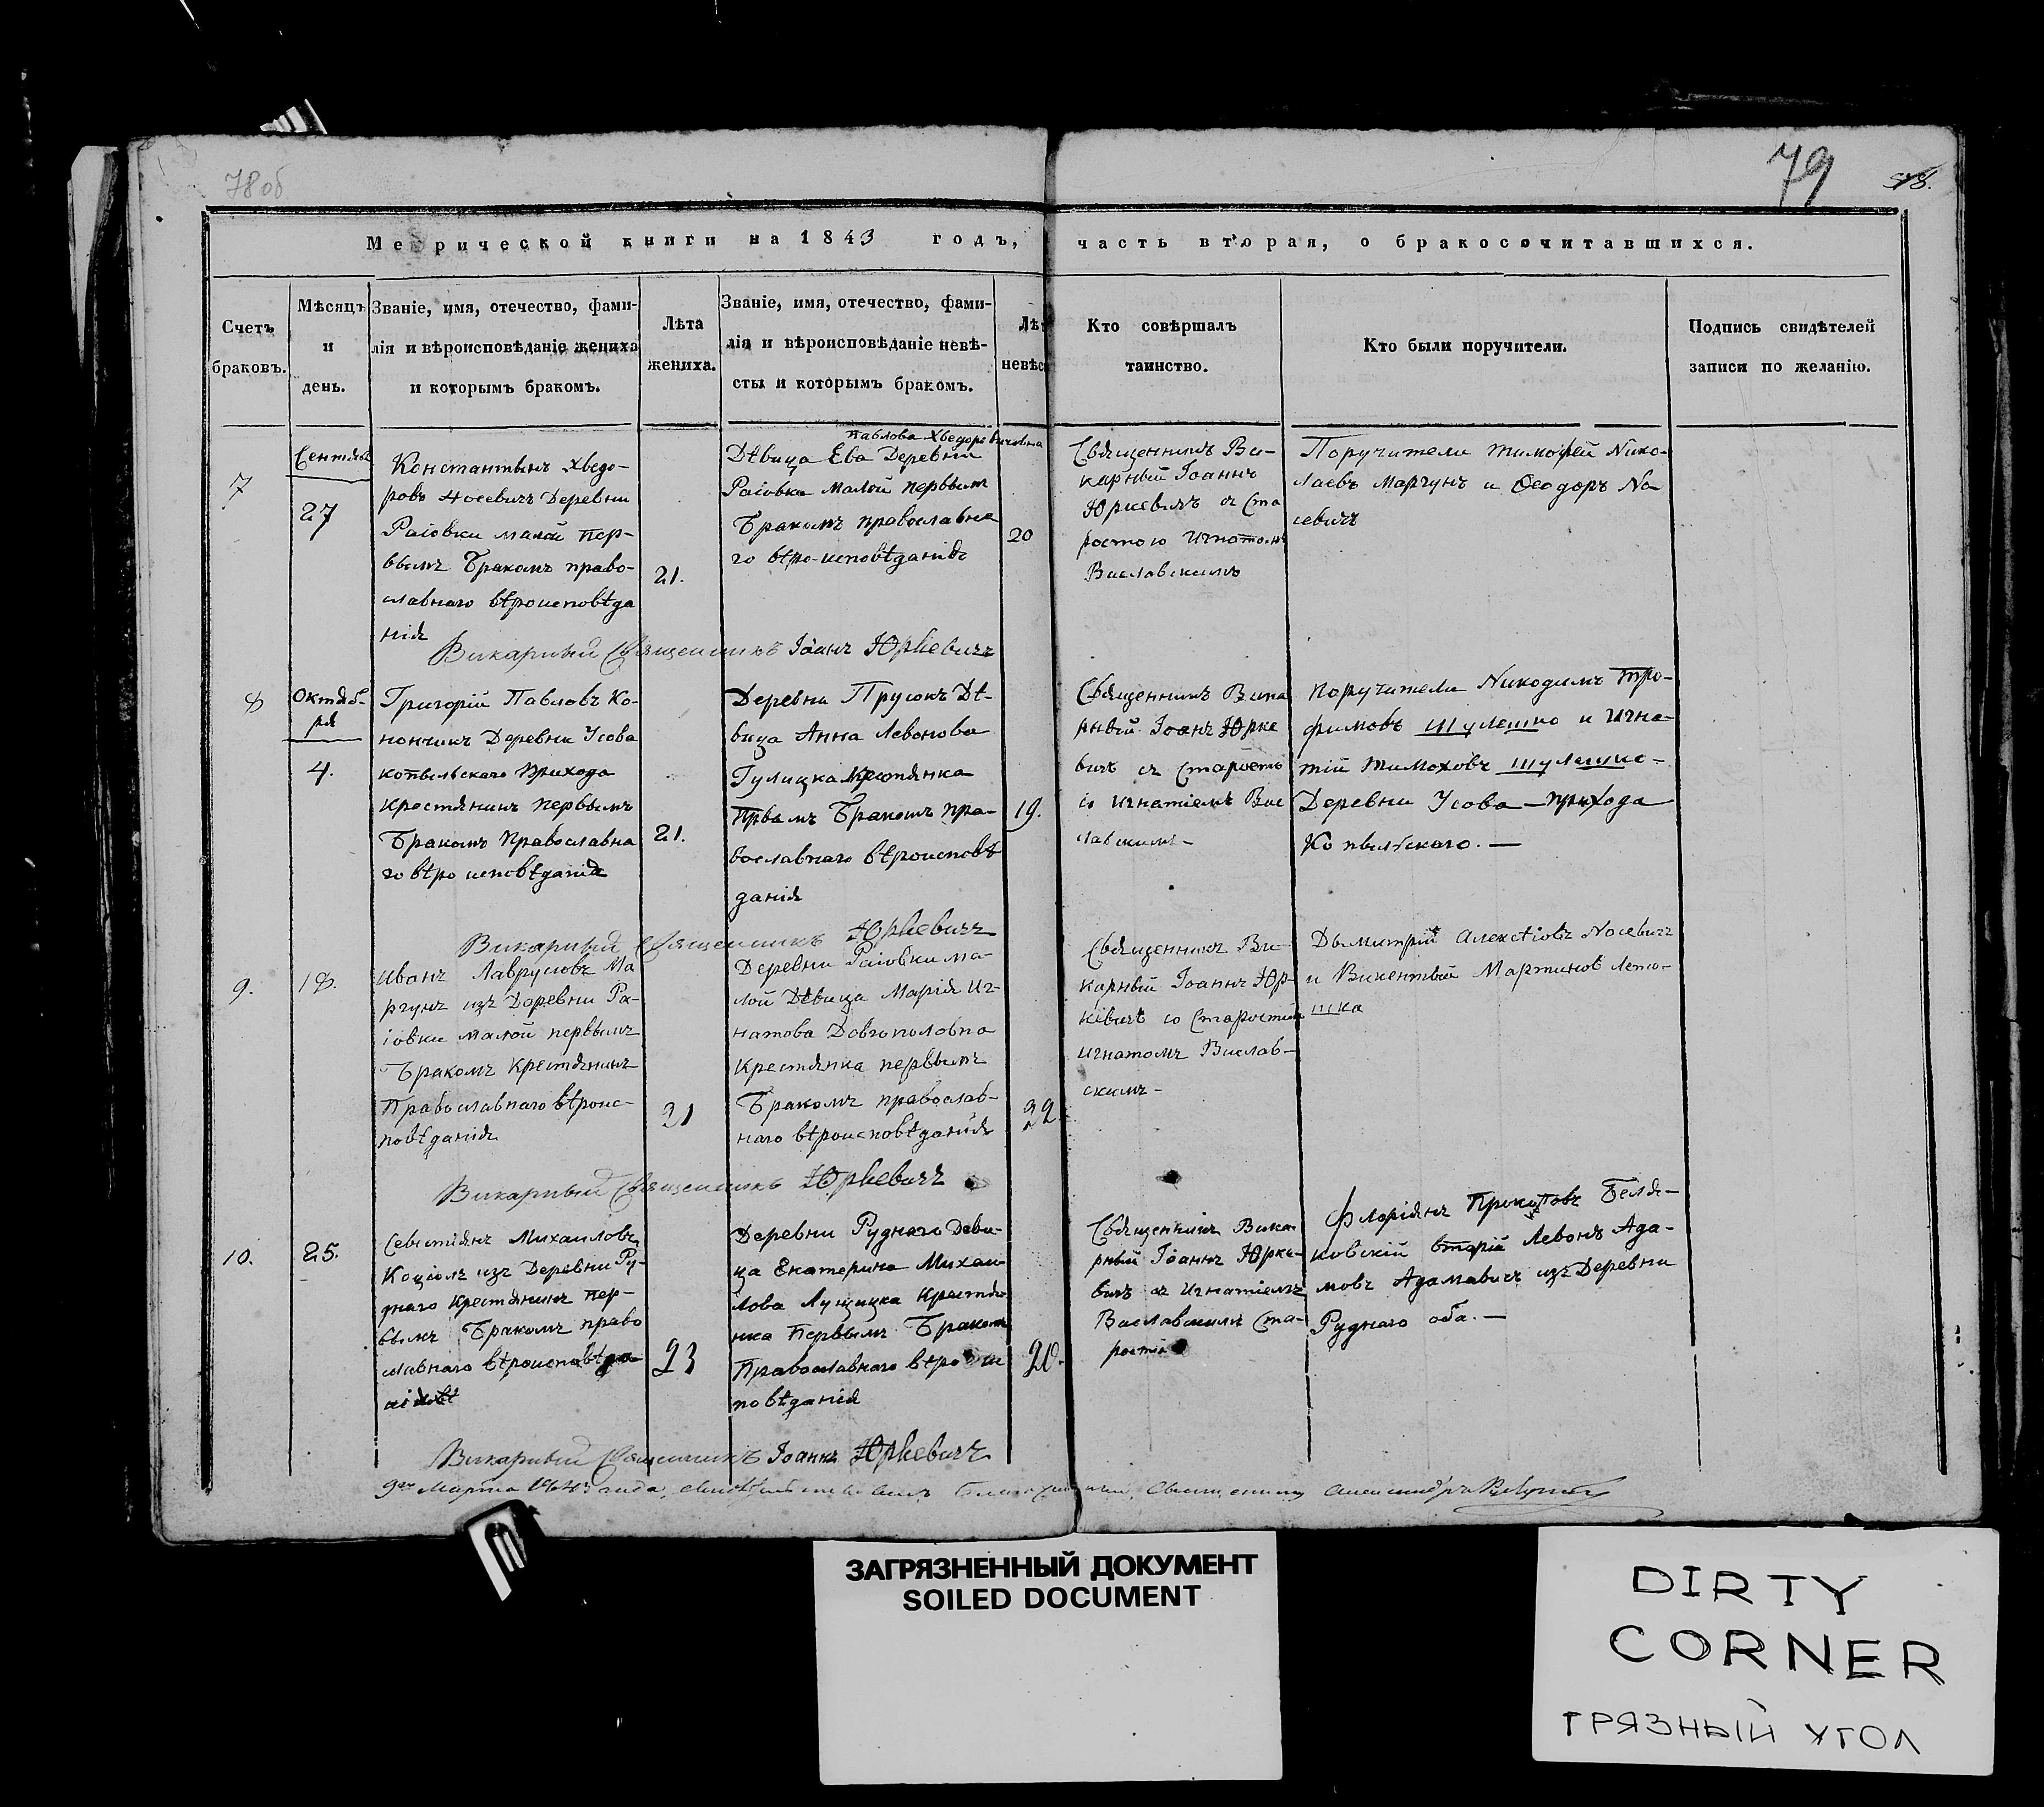 78 об
79
Метрической книги на 1843 годъ, часть вторая, о бракосочитавшихся.
Счетъ
браковъ.
Мѣсяцъ
и
день.
Званіе, имя, отечество, фами-
лія и вѣроисповѣданіе жениха
и которымъ бракомъ.
Лѣта
жениха.
Званіе, имя, отечество, фами-
лія и вѣроисповѣданіе невѣ-
сты и которымъ браком.
Лѣт
невѣс
Кто совѣршалъ
таинство.
Кто были поручители.
Подпись свидѣтелей
записи по желанію.
7
Сентяб
27
Константынъ Хведо-
ровъ Носевичъ Деревни
Раіовки малой Пер-
вымъ Бракомъ право-
славнаго вѣроисповѣда
нія
21.
Павлова Хведоровичовна
Дѣвица Ева Деревни
Раіовки малой первым
Бракомъ православна
го вѣро-исповѣданія
20
Священникъ Ви-
карный Іоаннъ
Юркевичъ съ Ста
ростою Игнатом
Виславскимъ
Поручители Тимофей Нико-
лаевъ Маргунъ и Ѳеодоръ Но
севичъ
Викарный Священникъ Іоанъ Юркевичъ
8
Октяб-
ря
4.
Григорій Павловъ Ко-
нончикъ Деревни Усова
копыльскаго Прихода
крестянинъ первымъ
Бракомъ Православна
го вѣро исповѣданія
21.
Деревни Прусокъ Дѣ-
вица Анна Левонова
Гулицка Крестянка
Првымъ Бракомъ пра-
вославнаго вѣроисповѣ
данія
19.
Священникъ Вика
рный Іоанъ Юрке
вичъ съ Старост
іо Игнатіемъ Вис
лавскимъ-
поручители Никодимъ Тро-
фимовъ Шулешко и Игна-
тій Тимоховъ Шулешко-
Деревни Усова - прихода
Копыльскаго. -
Викарный Священникъ Юркевичъ
9.
18.
Иванъ Лавруковъ Ма
ргунъ изъ Деревни Ра-
іовки малой первымъ
Бракомъ Крестянинъ
Православнаго вѣроис-
повѣданія
21
Деревни Раіовки ма-
лой Дѣвица Марія Иг-
натова Довгополовна
Крестянка первымъ
Бракомъ православ-
наго вѣроисповѣданія
22.
Священникъ Ви-
карный Іоаннъ Юр-
кевичъ со Старостою
Игнатомъ Вислав-
скимъ-
Дымитрій Алексѣовъ Носевичъ
и Викентый Мартиновъ Лето-
шка
Викарный Священникъ Юркевичъ
10.
25.
Севастіянъ Михаиловъ
Коціолъ изъ Деревни Ру-
днаго Крестянинъ Пер-
вымъ Бракомъ право
славнаго вѣроисповѣда
23
Деревни Руднаго Деви-
ца Екатерина Михаи
лова Лущицка Крестян
нка Первымъ Браком
Православнаго вѣро ис
повѣданія
20.
Священникъ Вика
рный Іоаннъ Юрке-
вичъ съ Игнатіемъ
Виславскимъ Ста-
ростіо
Флоріянъ Прокоповъ Беля-
ковскій вторій Левонъ Ада-
мовъ Адамавичъ изъ Деревни
Руднаго оба. -
Викарный Священникъ Іоаннъ Юркевичъ
Марта года Священникъ
ЗАГРЯЗНЕННЫЙ ДОКУМЕНТ
SOILED DOCUMENT
DIRTY
CORNER
ГРЯЗНЫЙ УГОЛ